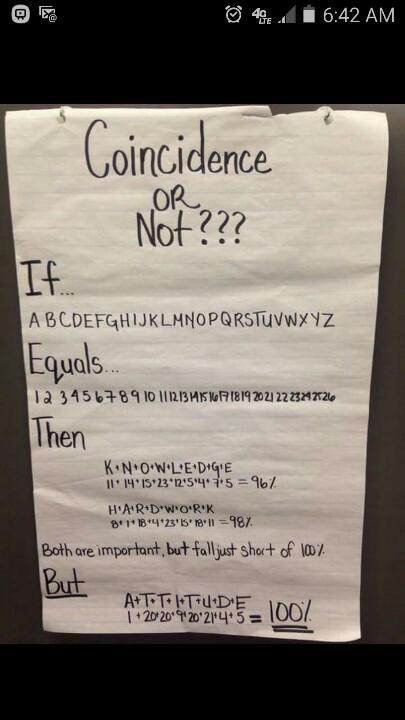 4G LTE 6:42 AM
Coincidence
OR
Not???
If...
A B C D E F G H I J K L M N O P Q R S T U V W X Y Z
Equals...
1 2 3 4 5 6 7 8 9 10 11 12 13 14 15 16 17 18 19 20 21 22 23 24 25 26
Then
K+N+O+W+L+E+D+G+E
11+14+15+23+12+5+4+7+5=96%
H+A+R+D+W+O+R+K
8+1+18+4+23+15+18+11=98%
Both are important, but fall just short of 100%.
But
A+T+T+I+T+U+D+E
1+20+20+9+20+21+4+5=100%